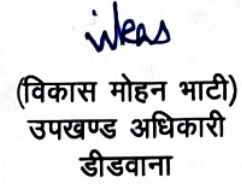 (विकास मोहन भाटी)
उपखण्ड अधिकारी
डीडवाना